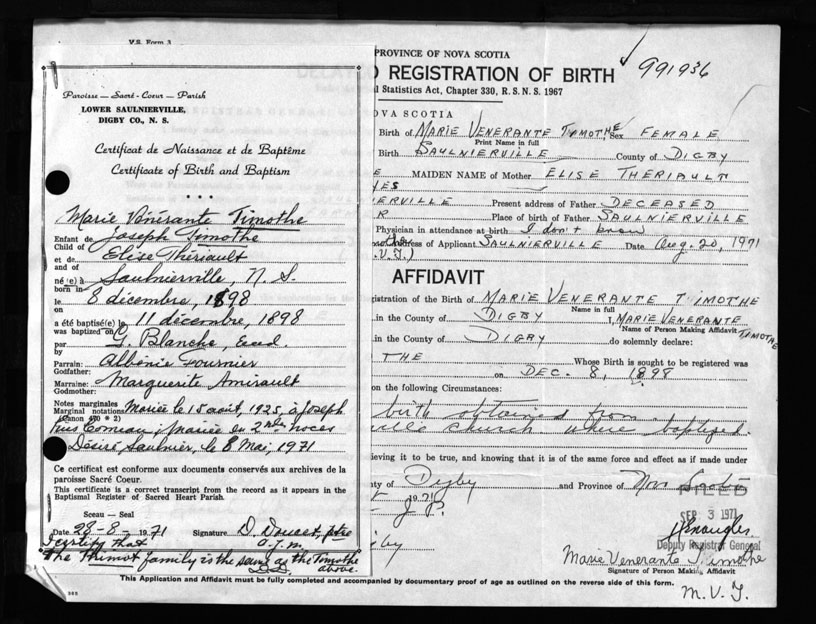 V.S. Form 3
Paroisse — Sacré-Coeur — Parish
LOWER SAULNIERVILLE,
DIGBY CO., N. S.
Certificat de Naissance et de Baptême
Certificate of Birth and Baptism
Marie Vénérante Timothe
Enfant de Joseph Timothe
Child of
et de Elise Thériault
and of
né(e) à Saulnierville, N. S.
born in
le 8 décembre, 1898
on
a été baptisé(e) le 11 décembre, 1898
was baptized on
par G. Blanche, Eud.
by
Parrain: Albénie Fournier
Godfather:
Marraine: Marguerite Amirault
Godmother:
Notes marginales Mariée le 15 août, 1925, à Joseph
Marginal notations
(Canon 470 * 2)
Yves Comeau; mariée en 2nde noces
Désiré Saulnier, le 8 Mai, 1971
Ce certificat est conforme aux documents conservés aux archives de la
paroisse Sacré Coeur.
This certificate is a correct transcript from the record as it appears in the
Baptismal Register of Sacred Heart Parish.
Sceau — Seal
Date 28-8-1971 Signature D. Doucet, ptre
I certify that
the Thimot family is the same as the Timothe
above.
D.D.
PROVINCE OF NOVA SCOTIA
991936
D REGISTRATION OF BIRTH
l Statistics Act, Chapter 330, R.S.N.S. 1967
OVA SCOTIA
Birth of MARIE VENERANTE TIMOTHE Sex FEMALE
Print Name in full
Birth SAULNIERVILLE County of DIGBY
E MAIDEN NAME of Mother ELISE THERIAULT
YES
IERVILLE Present address of Father DECEASED
R Place of birth of Father SAULNIERVILLE
Physician in attendance at birth I don't know
ddress of Applicant SAULNIERVILLE Date Aug. 20, 1971
AFFIDAVIT
gistration of the Birth of MARIE VENERANTE TIMOTHE
Name in full
in the County of DIGBY I, MARIE VENERANTE TIMOTHE
Name of Person Making Affidavit
in the County of DIGBY do solemnly declare:
THE Whose Birth is sought to be registered was
on DEC. 8, 1898
on the following Circumstances:
birth obtained from
ville church where baptized.
ieving it to be true, and knowing that it is of the same force and effect as if made under
ty of Digby and Province of Nova Scotia
1971
J.P.
FILED
SEP 3 1971
Deputy Registrar General
gby
Marie Venerante Timothe
Signature of Person Making Affidavit
This Application and Affidavit must be fully completed and accompanied by documentary proof of age as outlined on the reverse side of this form.
M.V.T.